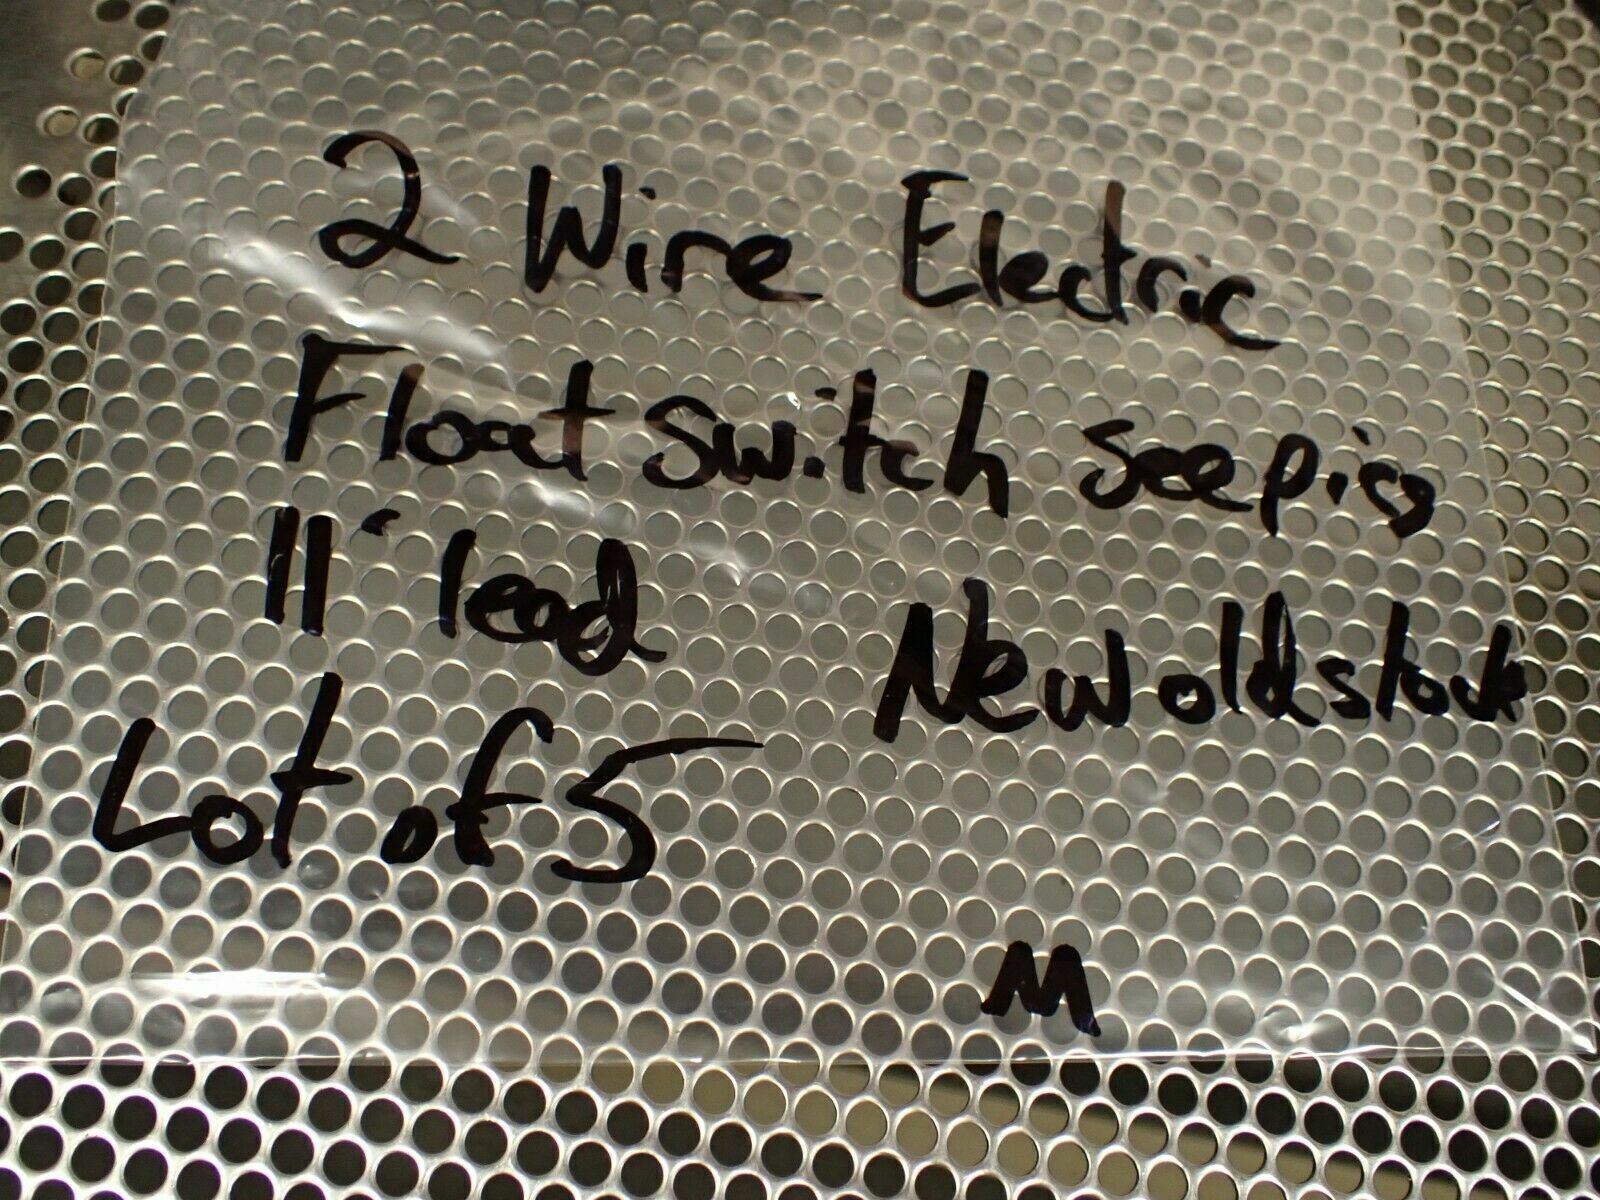 2 Wire Electric
Float switch see pics
11" lead
New old stock
Lot of 5
M